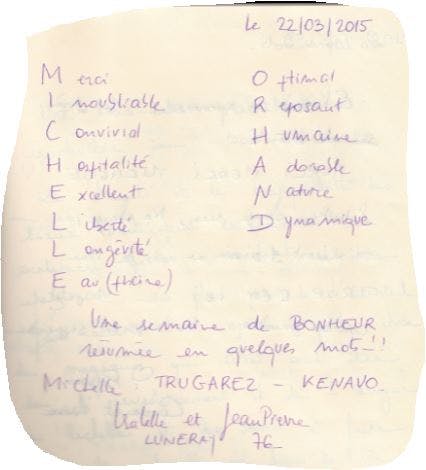 Le 22/03/2015
Merci
Inoubliable
Convivial
Hospitalité
Excellent
Liberté
Longévité
Eau (théine)
Optimal
Reposant
Humaine
Adorable
Nature
Dynamique
Une semaine de BONHEUR
résumée en quelques mots-!!
Michelle : TRUGAREZ - KENAVO
Isabelle et JeanPierre
LUNERAY 76